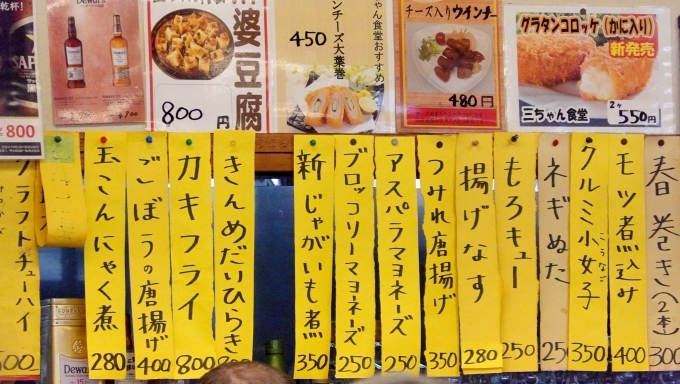 乾杯!
¥800
Dewar's
婆豆腐
800円
ちゃん食堂おすすめ
ンチーズ大葉巻
450
チーズ入りウインナー
480円
グラタンコロッケ(かに入り)
新発売
三ちゃん食堂
2ヶ
550円
クラフトチューハイ
500
玉こんにゃく煮
280
ごぼうの唐揚げ
400
カキフライ
800
きんめだいひらき
新じゃがいも煮
350
ブロッコリーマヨネーズ
250
アスパラマヨネーズ
250
つみれ唐揚げ
350
揚げなす
280
もろキュー
250
ネギぬた
250
クルミ小女子
こうなご
350
モツ煮込み
400
春巻き(2本)
300
Dewar's